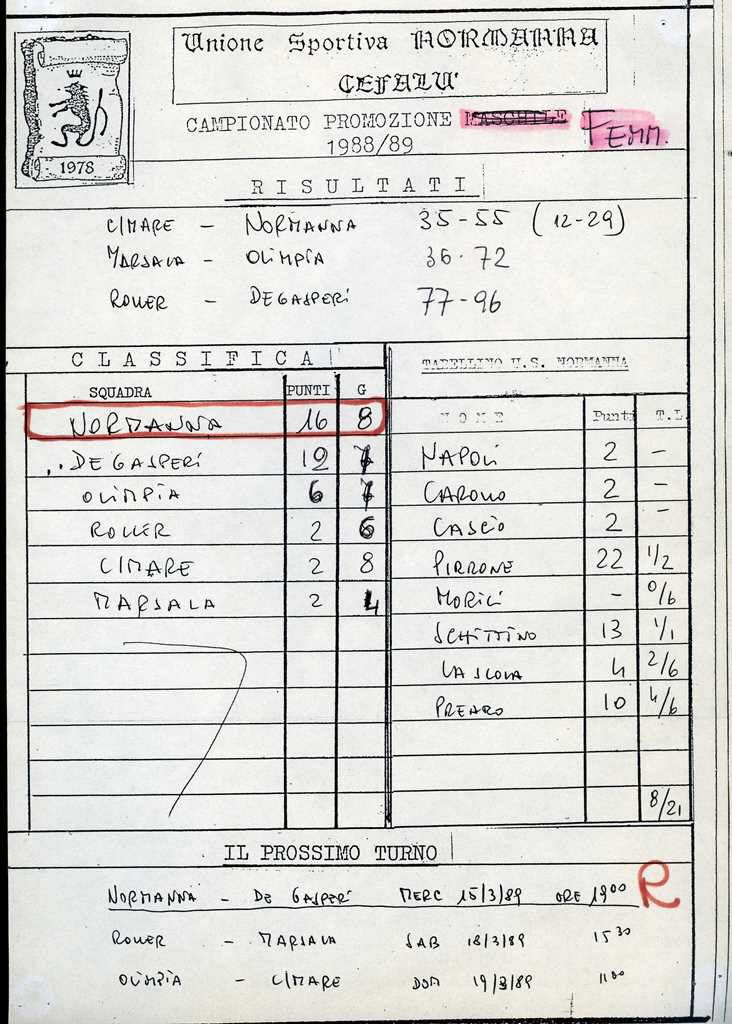 Unione Sportiva NORMANNA
CEFALU'
1978
CAMPIONATO PROMOZIONE MASCHILE FEMM.
1988/89
RISULTATI
CIMARE - NORMANNA 35-55 (12-29)
MARSALA - OLIMPIA 36-72
ROLLER - DEGASPERI 77-96
CLASSIFICA
SQUADRA PUNTI G
NORMANNA 16 8
DE GASPERI 12 7
OLIMPIA 6 7
ROLLER 2 6
CIMARE 2 8
MARSALA 2 4
TABELLINO U.S. NORMANNA
NOME Punti T.L.
NAPOLI 2 -
CAROLLO 2 -
CASCIO 2 -
PIRRONE 22 1/2
MORICI - 0/6
SCHITTINO 13 1/1
LA SCOLA 4 2/6
PREARO 10 4/6
8/21
IL PROSSIMO TURNO
NORMANNA - DE GASPERI MERC 15/3/89 ORE 19:00 R
ROLLER - MARSALA SAB 18/3/89 15 30
OLIMPIA - CIMARE DOM 19/3/89 11 00